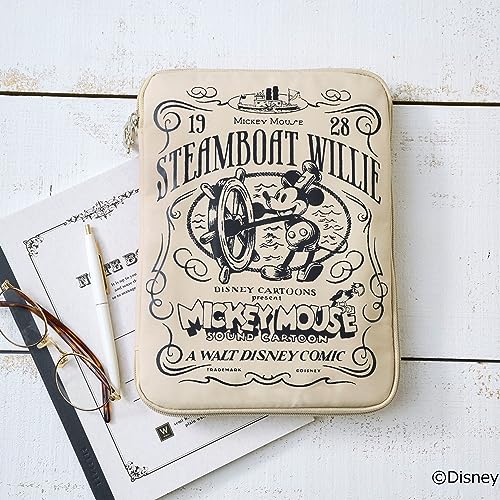 MICKEY MOUSE
19 28
STEAMBOAT WILLIE
DISNEY CARTOONS
present
MICKEY MOUSE
SOUND CARTOON
A WALT DISNEY COMIC
TRADEMARK ©DISNEY
NOTE BO
W
©Disney